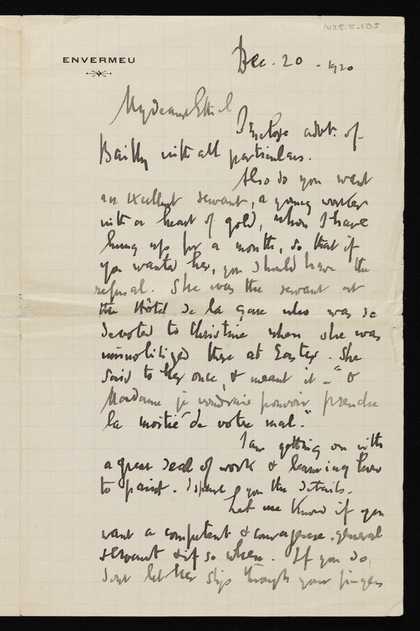 ENVERMEU
Dec. 20. 1920
My dearest Ethel
I enclose advt. of
Bailly with all particulars.
Also do you want
an excellent servant, a young worker
with a heart of gold, whom I have
hung up for a month, so that if
you wanted her, you should have the
refusal. She was the servant at
the Hôtel de la Gare who was so
devoted to Christine when she was
immobilized there at Easter. She
said to her once, & meant it – "O
Madame je voudrais pouvoir prendre
la moitié de votre mal."
I am getting on with
a great deal of work & learning how
to paint. I spare you the details.
Let me know if you
want a competent & courageous general
servant & if so when. If you do,
don't let her slip through your fingers